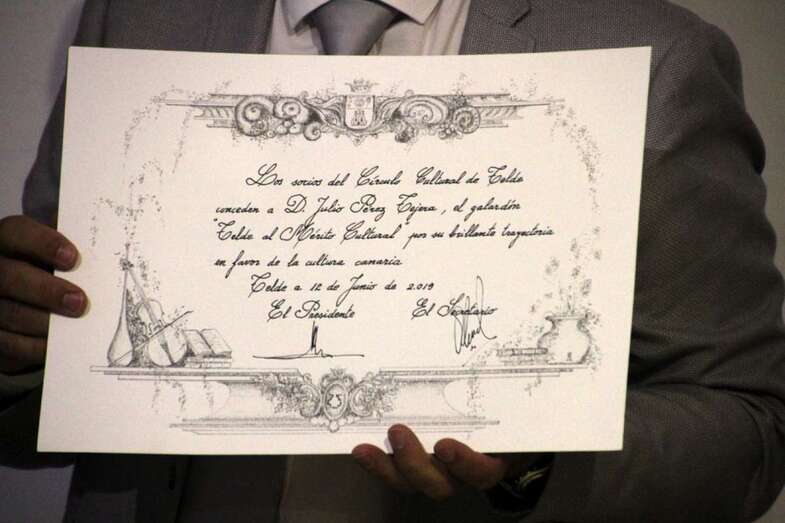 Los socios del Círculo Cultural de Telde
conceden a D. Julio Pérez Tejera, el galardón
"Telde al Mérito Cultural" por su brillante trayectoria
en favor de la cultura canaria
Telde a 12 de Junio de 2019
El Presidente El Secretario